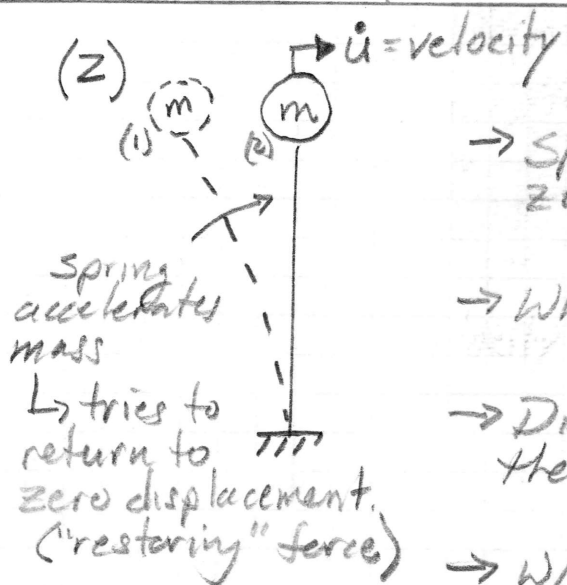 (2)
u̇ = velocity
m
m
(1)
(2)
→ Sp
z
spring
accelerates
mass
→ Wh
↳ tries to
return to
zero displacement.
("restoring" force)
→ D
the
→ W